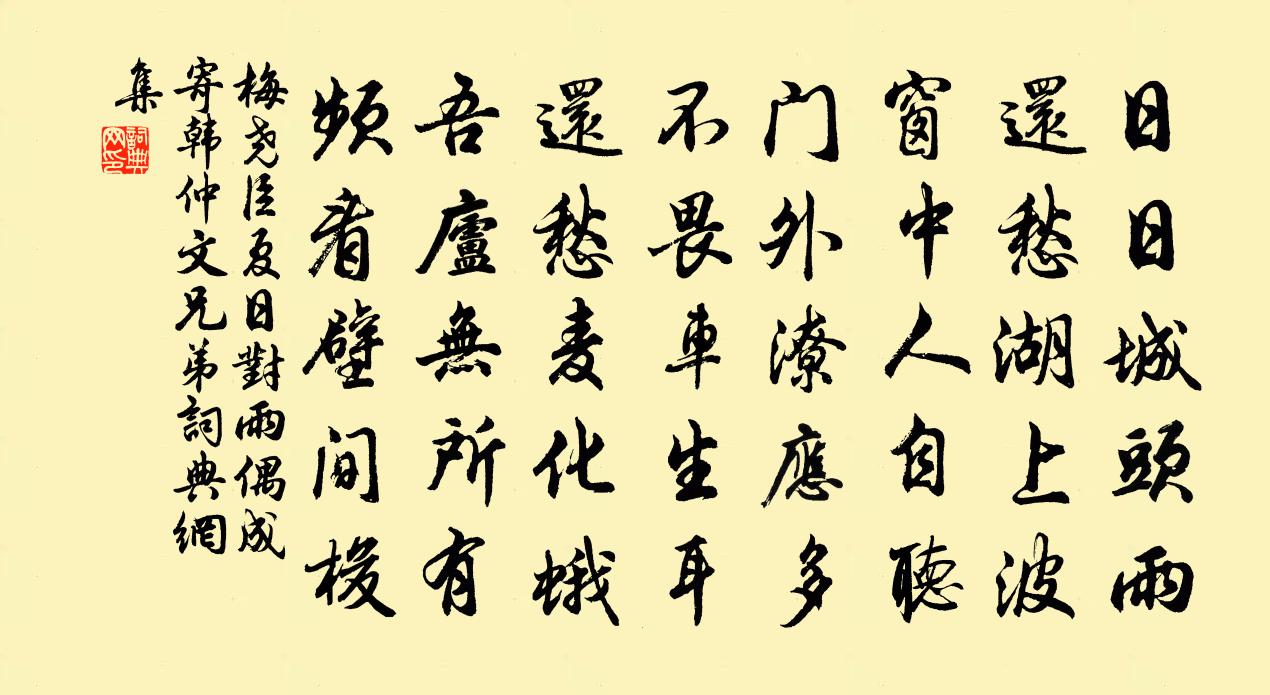 日日城頭雨
還愁湖上波
窗中人自聽
门外潦應多
不畏車生耳
還愁麦化蛾
吾廬無所有
頻看壁间梭
梅尧臣夏日對雨偶成
寄韩仲文兄弟詞典網
集
詞典网印